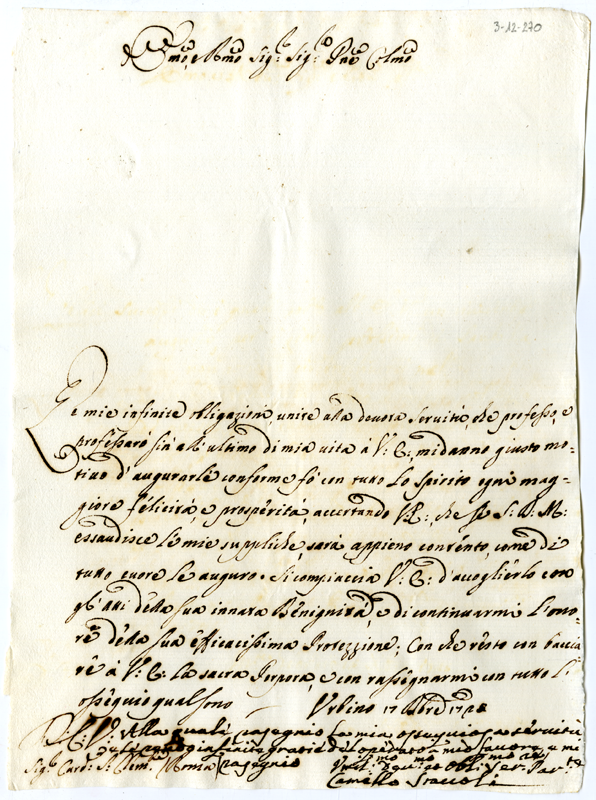 3-12-270
Em̃o, e Rmo Sig:r Sig:r Pne Colmo
Le mie infinite obligazioni, unite alla devota servitù, che professo, e
professarò sin all'ultimo di mia vita à V: E:, mi danno giusto mo=
tivo d'augurarle conforme fò con tutto lo spirito ogni mag=
giore felicità, e prosperità, accertando V: E:, che se S: D: M:
essaudisce le mie suppliche, sarà appieno contento, come di
tutto cuore le auguro. Si compiaccia V: E: d'accoglierlo con
gl'atti della sua innata Benignità, e di continuarmi l'ono=
re della sua efficacissima Protezzione; Con che resto con baccia
re à V: E: la sacra Porpora, e con rassegnarmi con tutto l'
ossequio qual sono Urbino 17 Xbre
V: E: Alla quale rasegnio la mia ossequiosa servitù
infinite gratie del operato a mio favore, e mi
Sig:r Card: S: Clem:te Roma rasegnio
Camillo Staccoli